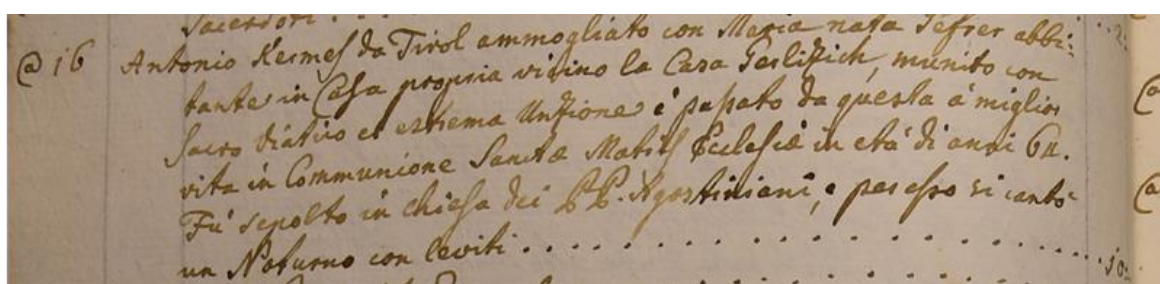 Sacerdoti . . .
@ 16 Antonio Kermes da Tirol ammogliato con Maria nata Pefrer abbi:
tante in Casa propria vicino la Casa Terlizich, munito con
Sacro Viatico et estrema Unzione è passato da questa a miglior
vita in Communione Sanctæ Matris Ecclesiæ in età di anni 60.
Fù sepolto in chiesa dei PP. Agostiniani, e per esso si cantò
un Noturno con leviti . . . . . . . . . . . . . . . . . . . .